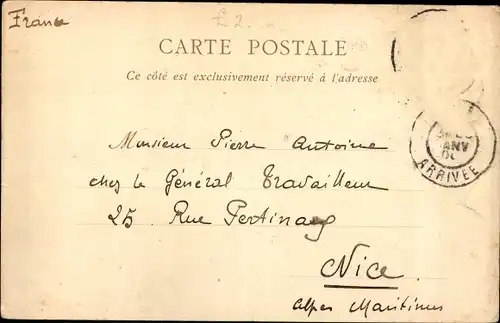 France
£2
CARTE POSTALE
Ce côté est exclusivement réservé à l'adresse
Monsieur Pierre Antoine
chez le Général Travailleur
25 Rue Pertinax
Nice
Alpes Maritimes
JANV
ARRIVÉE